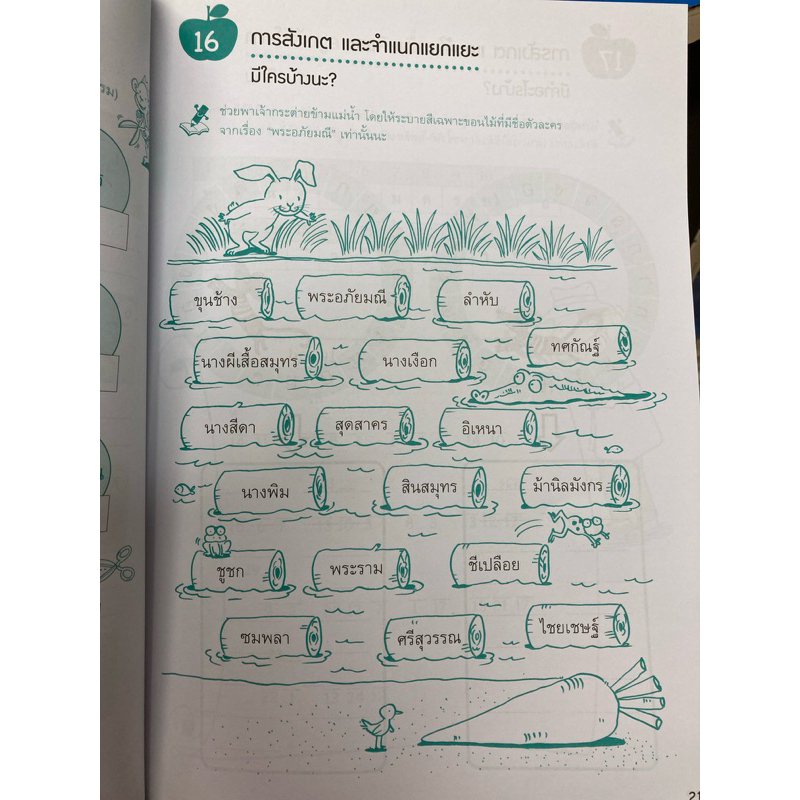 16
การสังเกต และจำแนกแยกแยะ
มีใครบ้างนะ?
ช่วยพาเจ้ากระต่ายข้ามแม่น้ำ โดยให้ระบายสีเฉพาะขอนไม้ที่มีชื่อตัวละคร
จากเรื่อง “พระอภัยมณี” เท่านั้นนะ
ขุนช้าง พระอภัยมณี ลำหับ
นางผีเสื้อสมุทร นางเงือก ทศกัณฐ์
นางสีดา สุดสาคร อิเหนา
นางพิม สินสมุทร ม้านิลมังกร
ชูชก พระราม ชีเปลือย
ซมพลา ศรีสุวรรณ ไชยเชษฐ์
21